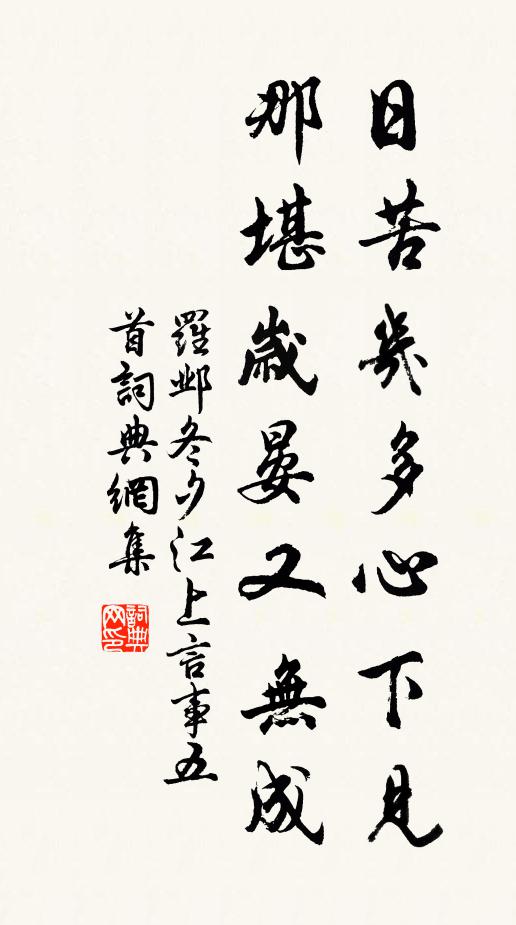 日苦幾多心下見
那堪歲晏又無成
羅鄴冬夕江上言事五
首詞典網集
詞典网印